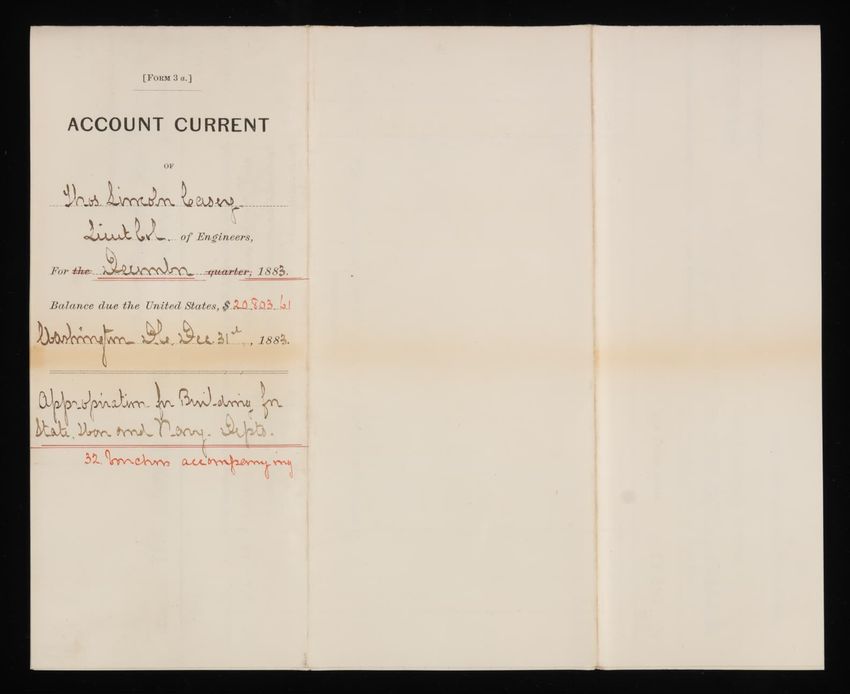 [FORM 3 a.]
ACCOUNT CURRENT
OF
Thos. Lincoln Casey
Lieut Col. of Engineers,
For the December quarter, 1883.
Balance due the United States, $20.803.61
Washington D.C. Dec 31st, 1883.
Appropriation for Building for
State, War and Navy Depts.
32 Vouchers accompanying